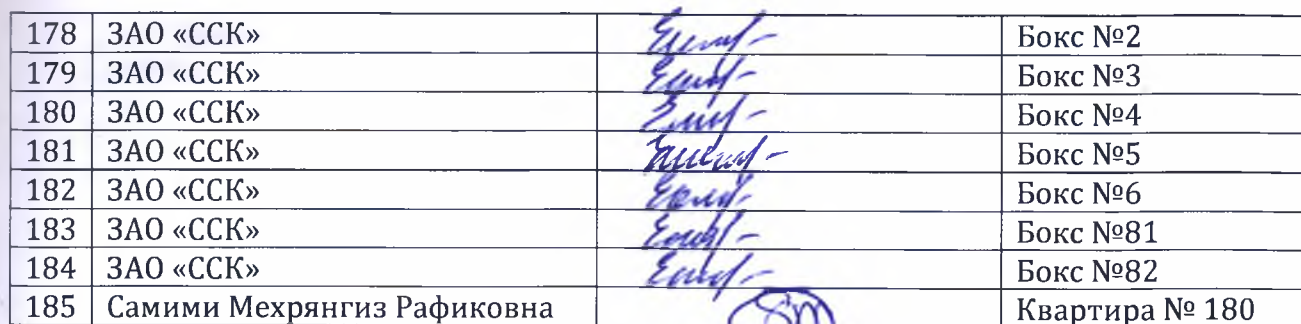 178 ЗАО «ССК» Бокс №2
179 ЗАО «ССК» Бокс №3
180 ЗАО «ССК» Бокс №4
181 ЗАО «ССК» Бокс №5
182 ЗАО «ССК» Бокс №6
183 ЗАО «ССК» Бокс №81
184 ЗАО «ССК» Бокс №82
185 Самими Мехрянгиз Рафиковна Квартира № 180